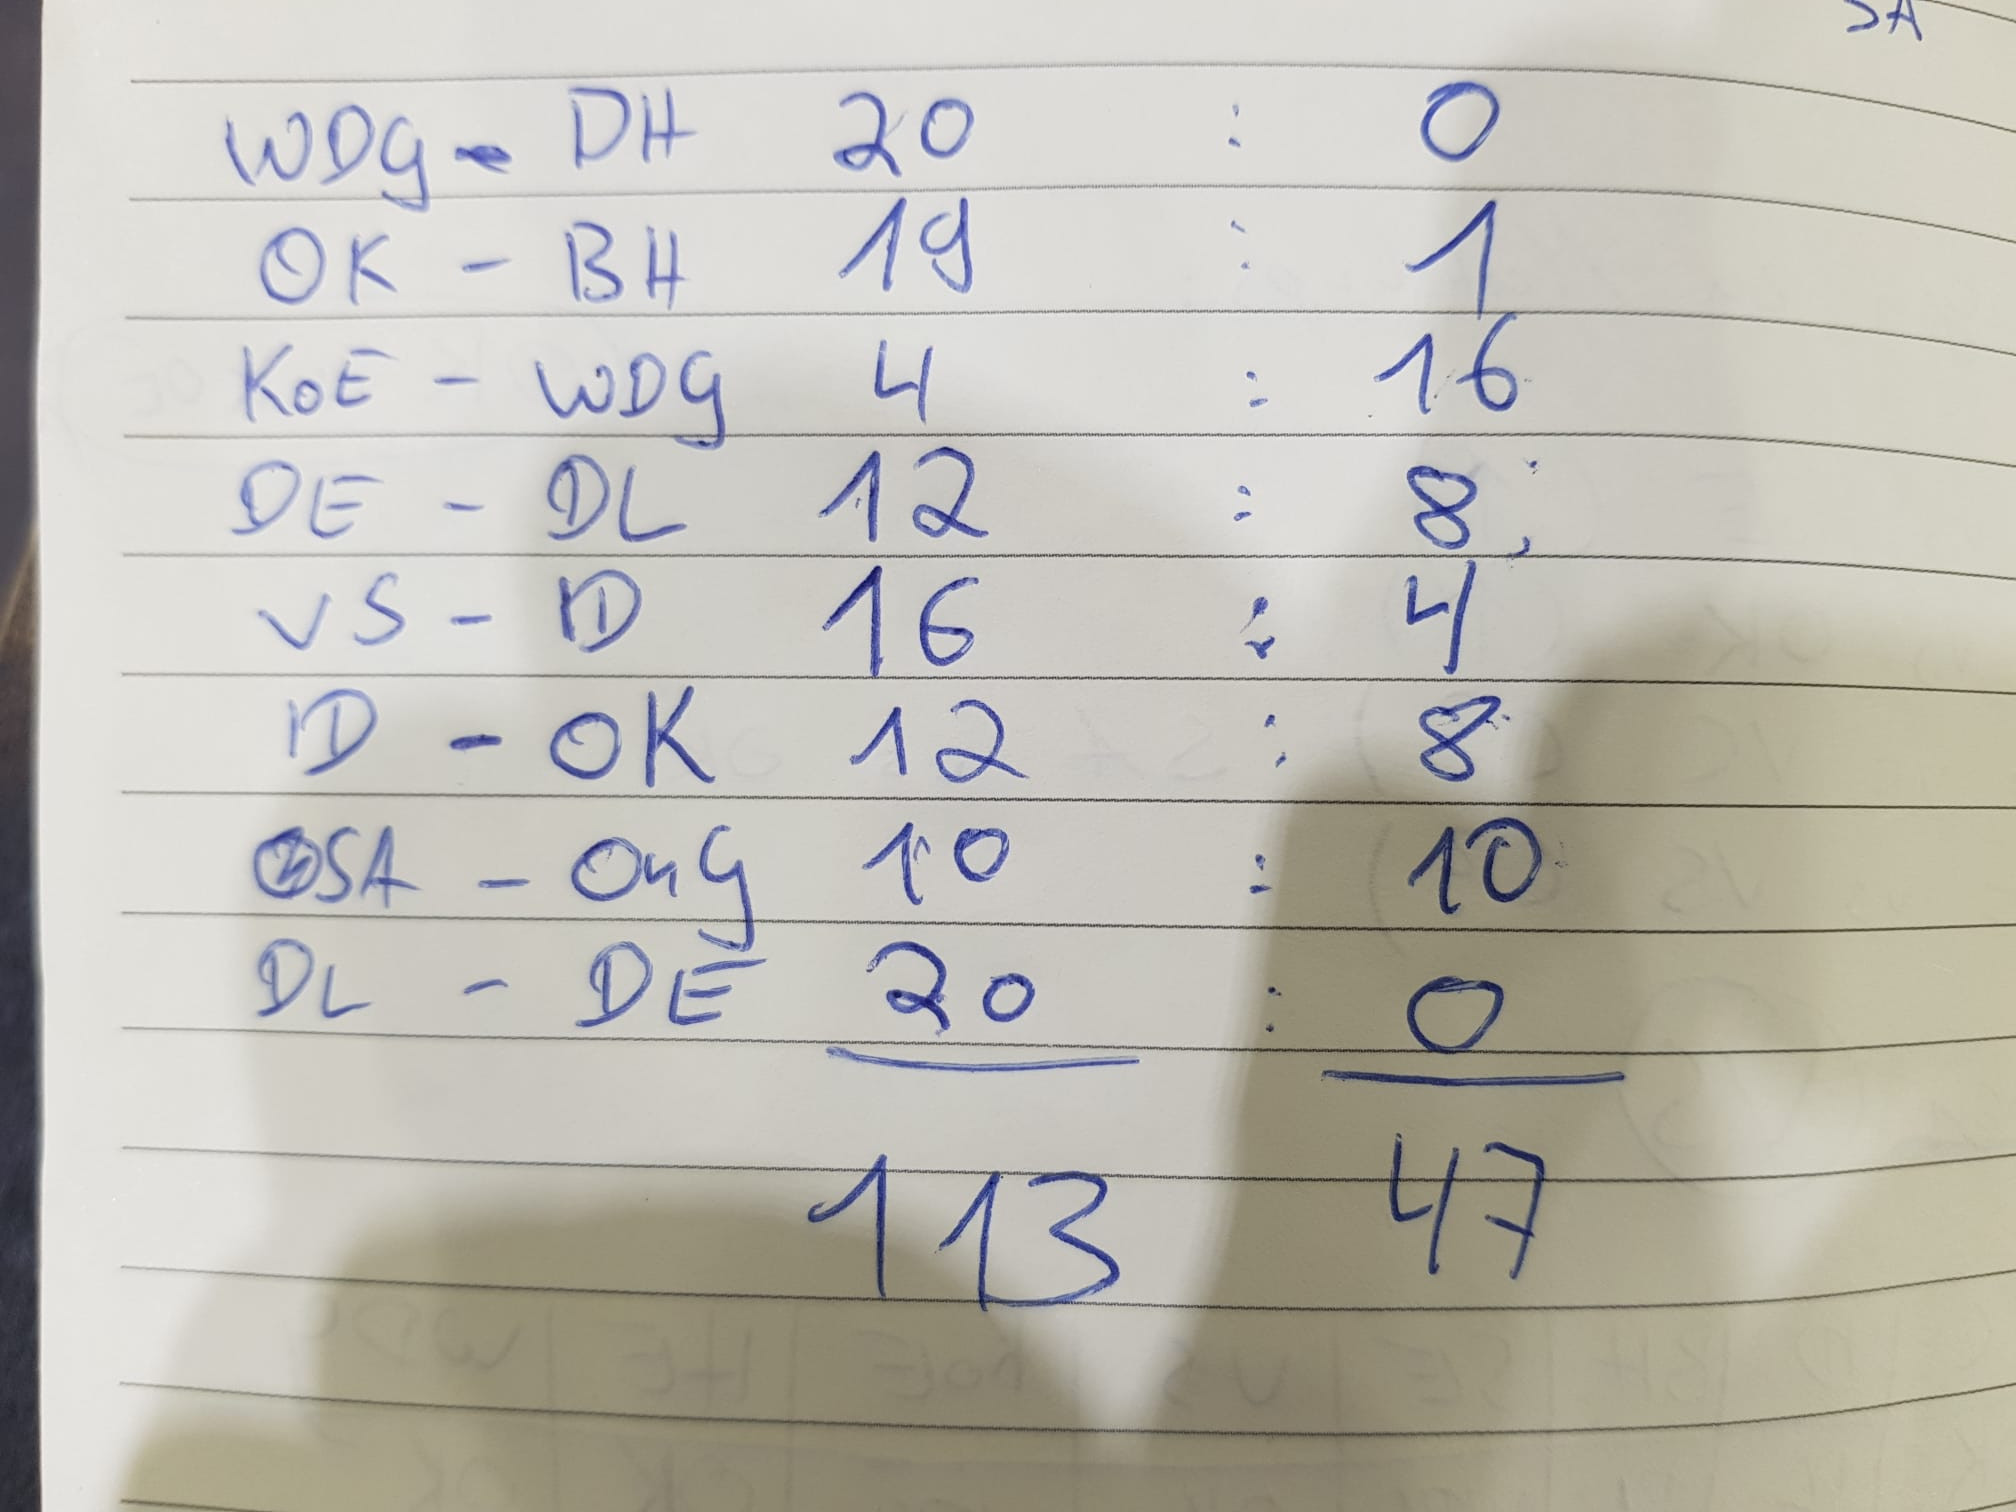 SA
WDG - DH 20 : 0
OK - BH 19 : 1
KoE - WDG 4 : 16
DE - DL 12 : 8
VS - ID 16 : 4
ID - OK 12 : 8
SA - OnG 10 : 10
DL - DE 20 : 0
113 47